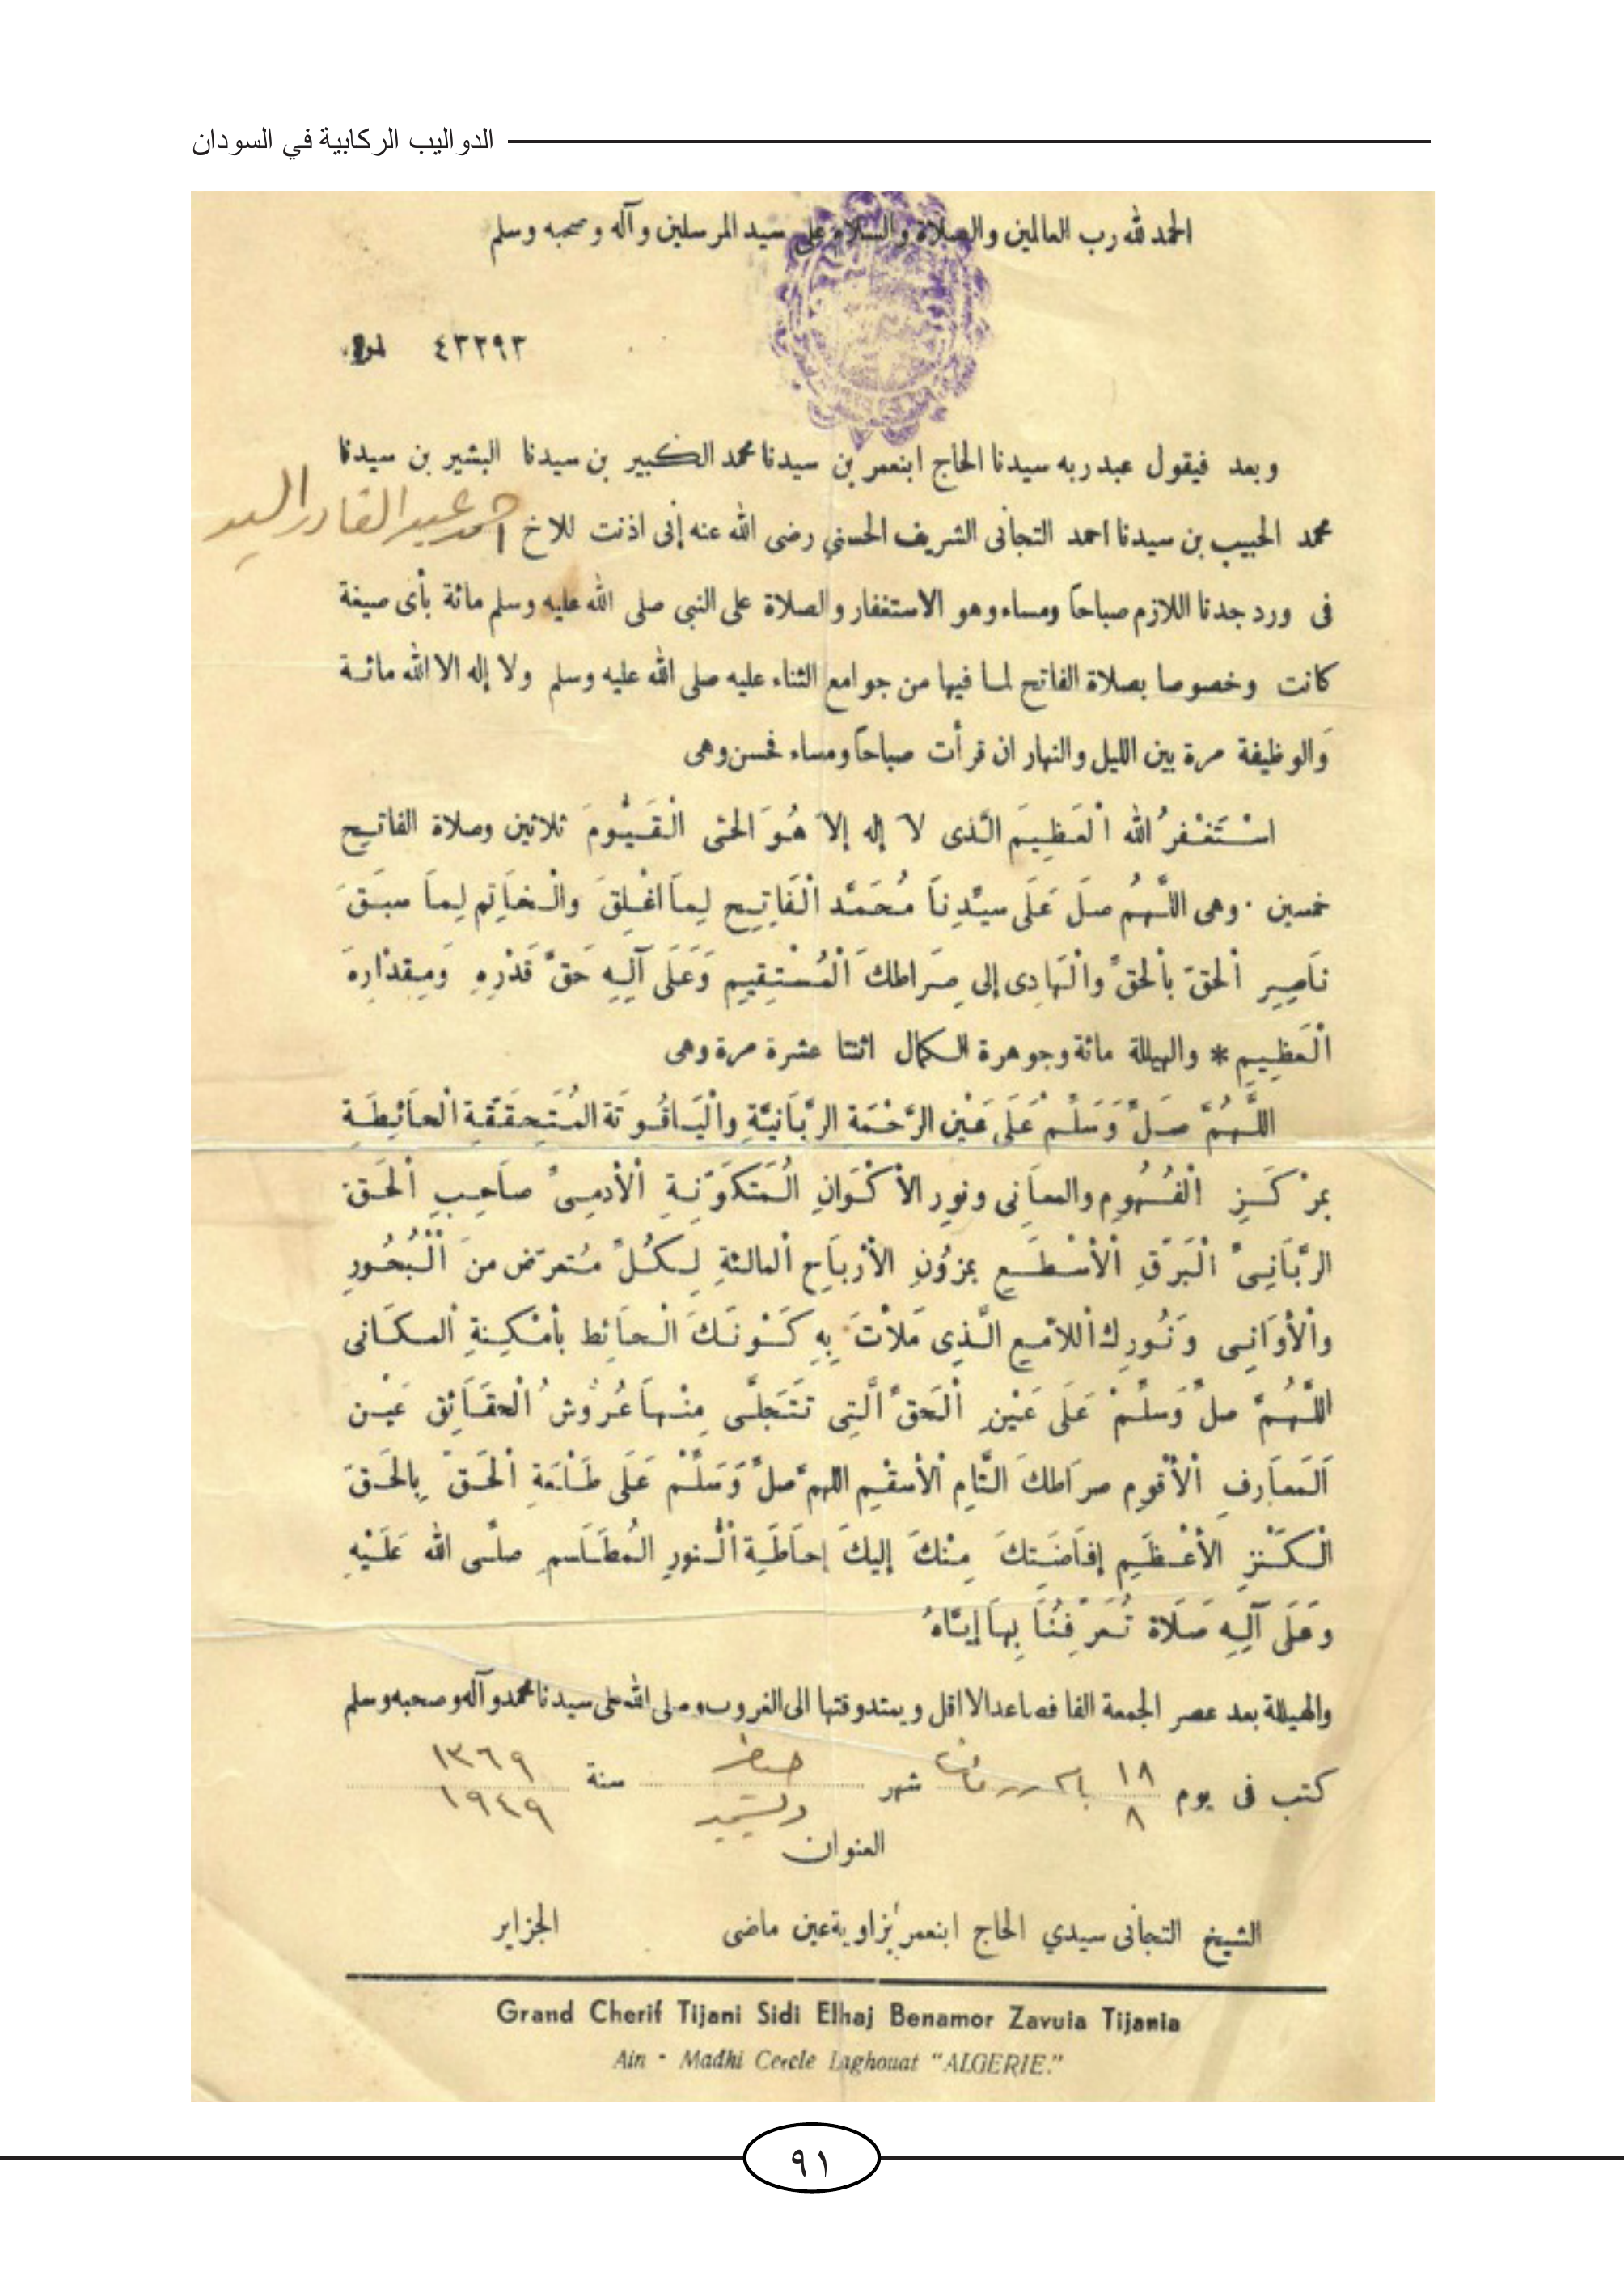 الدواليب الركابية في السودان
الحمد لله رب العالمين والصلاة والسلام على سيد المرسلين وآله وصحبه وسلم
٤٣٢٩٣
وبعد فيقول عبد ربه سيدنا الحاج ابنعمر بن سيدنا محمد الكبير بن سيدنا البشير بن سيدنا
محمد الحبيب بن سيدنا احمد التجانى الشريف الحسني رضى الله عنه إنى اذنت للاخ احمد عبد القادر السيد
فى ورد جدنا اللازم صباحاً ومساء وهو الاستغفار والصلاة على النبى صلى الله عليه وسلم مائة بأى صيغة
كانت وخصوصا بصلاة الفاتح لما فيها من جوامع الثناء عليه صلى الله عليه وسلم ولا إله الا الله مائة
والوظيفة مرة بين الليل والنهار ان قرأت صباحاً ومساء فحسن وهى
اسْتَغْفرُ الله الْعَظِيمَ الَّذى لاَ إله إلاَ هُوَ الحتى الْقَيُّومَ ثلاثين وصلاة الفاتح
خمسين . وهى اللَّهُم صلَ عَلَى سيّدِناَ مُحَمَّد الْفَاتِح لِماَ اغْلِقَ والْخاَتِم لِماَ سبَقَ
ناَصِرِ الْحقّ باْلحقّ والْهاَدِى إلى صِرَاطكَ الْمُسْتِقِيمِ وَعَلَى آلِهِ حَقّ قَدْرِهِ وَمِقدْارِهِ
الْعَظِيمِ * والهيللة مائة وجوهرة الكمال اثنتا عشرة مرة وهى
اللَّهُمَّ صَلّ وَسَلّمْ عَلَى عَيْن الرَّحْمَة الرَّبَانيَّةِ والْيَاقُوتَة المُتَحِقَقّةِ الْحاَئِطَةِ
بمرْكَزِ الْفُهُومِ والمعاَنى ونورِ الاَكْوَانِ الْمُتَكَوّنِةِ الْأدمِىّ صاَحِبِ الْحَق
الرَّبَانِىّ الْبَرْقِ الْأسْطَعِ بمزُونِ الأرْباَحِ الْمالئةِ لِكُلّ مُتعرّض منَ الْبُحُورِ
والْأوَانِى وَنُورِك اْللامّعِ الَّذِى مَلأتَ بِهِ كَوْنَكَ الْحاَئط بأمْكِنةِ الْمكَانى
اللَّهُمَّ صلّ وَسَلّمْ عَلَى عَيْنِ الْحَقّ الَّتِى تَتَجَلَّى مِنْهاَ عُرُوشُ الْحقَائِق عَيْن
اَلْمَعاَرِفِ الْأقْومِ صرَاطكَ التَّامِ الْأسقْمِ اللهمّ صلّ وَسَلّمْ عَلَى طَلْعَةِ الْحَقّ بِالحَقّ
الْكَنْزِ الأعْظَمِ إفاَضَتِكَ مِنْكَ إليكَ إحاَطَةِ الْنورِ المُطَلْسمِ صلَّى الله عَلَيْهِ
وعَلَى آلِهِ صَلَاة تُعَرّفُنَا بِهاَ إيَّاهُ
والهيللة بعد عصر الجمعة الفا فصاعدا لا اقل ويمتد وقتها الى الغروب وصلى الله على سيدنا محمد وآله وصحبه وسلم
كتب فى يوم ١٨ شهر صفر سنة ١٣٦٩
٨ ١٩٤٩
العنوان
الشيخ التجانى سيدي الحاج ابنعمر بزاوية عين ماضى الجزاير
Grand Cherif Tijani Sidi Elhaj Benamor Zavuia Tijania
Ain - Madhi Cercle Laghouat "ALGERIE."
٩١